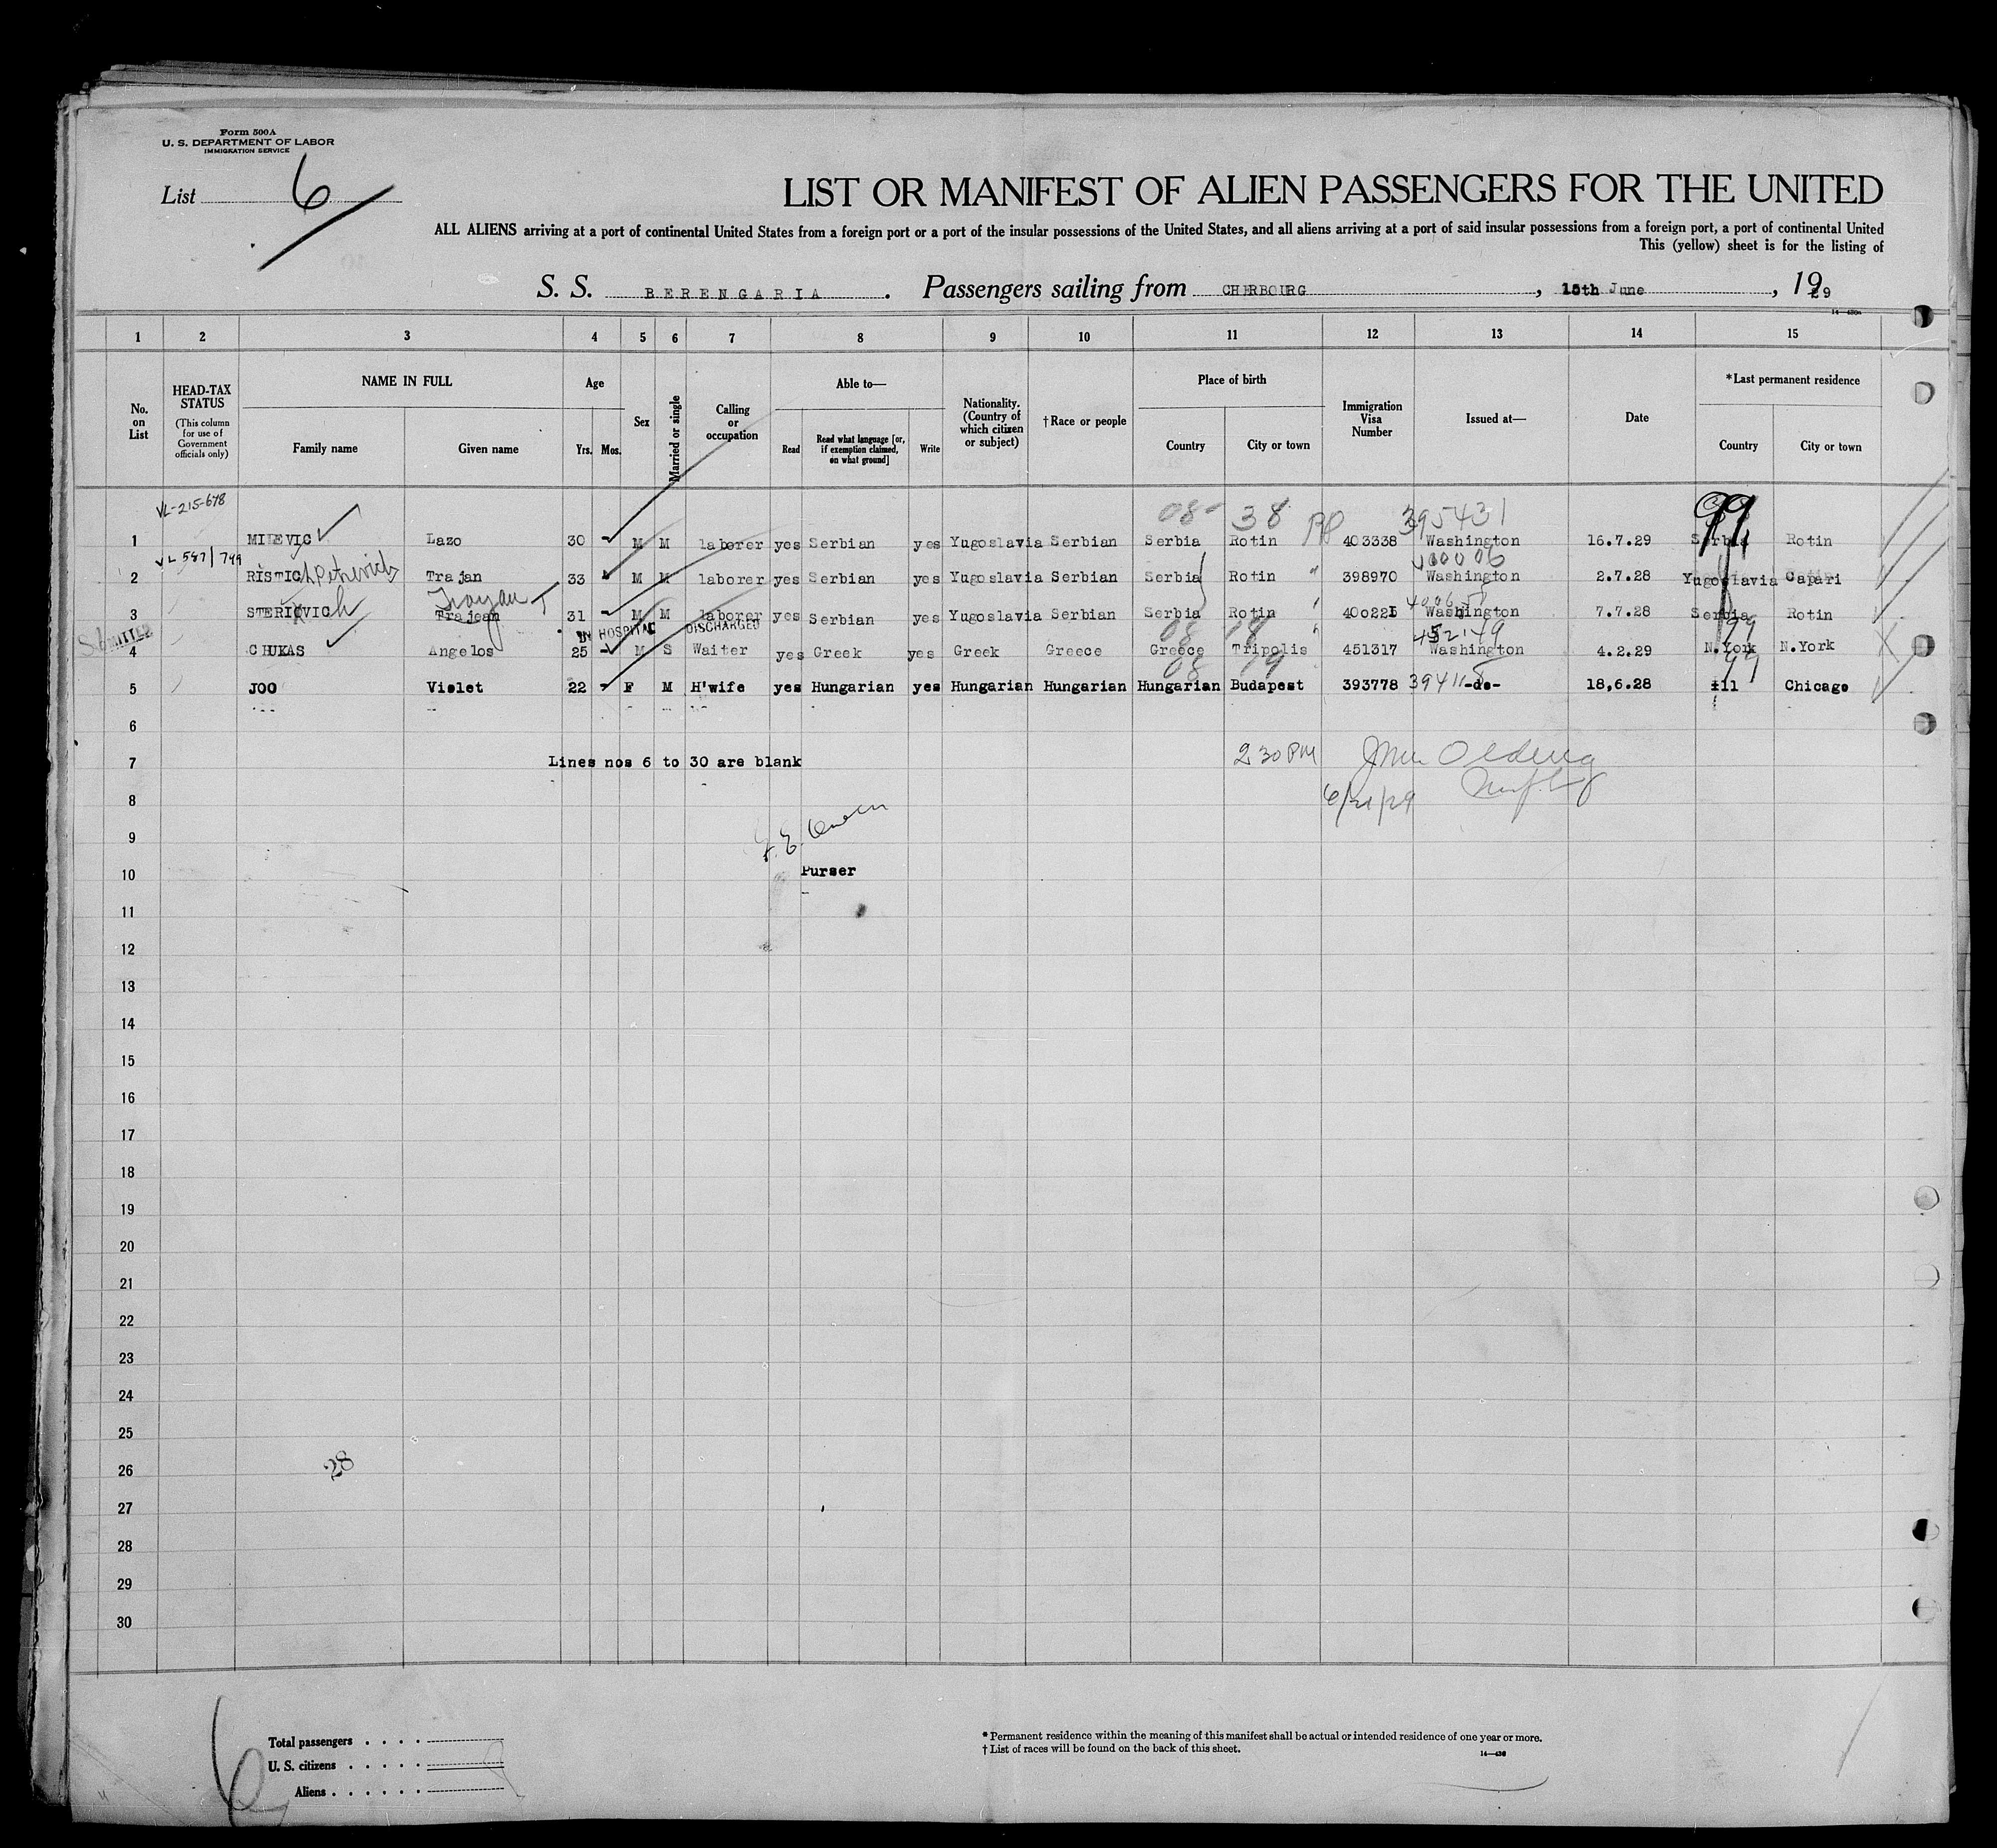 Form 500A
U. S. DEPARTMENT OF LABOR
IMMIGRATION SERVICE
List 6
LIST OR MANIFEST OF ALIEN PASSENGERS FOR THE UNITED
ALL ALIENS arriving at a port of continental United States from a foreign port or a port of the insular possessions of the United States, and all aliens arriving at a port of said insular possessions from a foreign port, a port of continental United
This (yellow) sheet is for the listing of
S. S. BERENGARIA. Passengers sailing from CHERBOURG, 15th June, 1929
1 2 3 4 5 6 7 8 9 10 11 12 13 14 15
No. on List
HEAD-TAX STATUS (This column for use of Government officials only)
NAME IN FULL Family name Given name
Age Yrs. Mos.
Sex
Married or single
Calling or occupation
Able to— Read Read what language [or, if exemption claimed, on what ground] Write
Nationality. (Country of which citizen or subject)
†Race or people
Place of birth Country City or town
Immigration Visa Number
Issued at—
Date
*Last permanent residence Country City or town
VL-215-678 08 38 395431 99
1 MILEVIC Lazo 30 - M M laborer yes Serbian yes Yugoslavia Serbian Serbia Rotin 403338 Washington 16.7.29 Serbia Rotin
VL 587/749 400006
2 RISTIC Petrovich Trajan 33 M M laborer yes Serbian yes Yugoslavia Serbian Serbia Rotin " 398970 Washington 2.7.28 Yugoslavia Capari
Trayan
3 STERIOVICh Trajean 31 - M M laborer yes Serbian yes Yugoslavia Serbian Serbia Rotin 400221 Washington 7.7.28 Serbia Rotin
ADMITTED IN HOSPITAL DISCHARGED 08 18 452149 99
4 CHUKAS Angelos 25 - M S Waiter yes Greek yes Greek Greece Greece Tripolis 451317 Washington 4.2.29 N.York N.York
08 19 99
5 JOO Violet 22 - F M H'wife yes Hungarian yes Hungarian Hungarian Hungarian Budapest 393778 -do- 18,6.28 ill Chicago
6
7 Lines nos 6 to 30 are blank 2 30 PM
8 6/21/29
9
10 Purser
11
12
13
14
15
16
17
18
19
20
21
22
23
24
25
26 28
27
28
29
30
6
Total passengers . . . .
U. S. citizens . . . . .
Aliens . . . . . .
* Permanent residence within the meaning of this manifest shall be actual or intended residence of one year or more.
† List of races will be found on the back of this sheet.